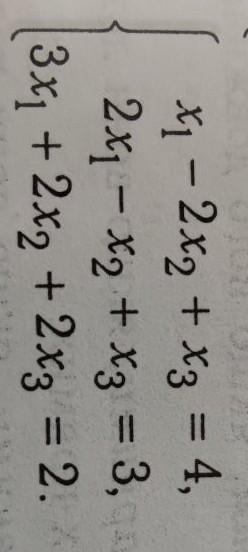 x₁ − 2x₂ + x₃ = 4,
2x₁ − x₂ + x₃ = 3,
3x₁ + 2x₂ + 2x₃ = 2.